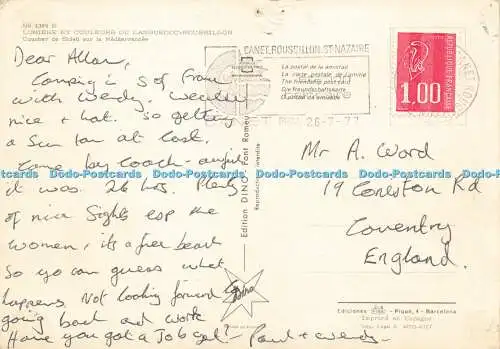 LUMIERE ET COULEURS DU LANGUEDOC-ROUSSILLON
Coucher de Soleil sur la Méditerranée
Dear Allan,
Camping in S of France
with Wendy. Weather
nice & hot. So getting
a Sun tan at last.
Came by coach - awful
it was. 26 hrs. Plenty
of nice Sights esp the
women, its a free beach
So you can guess what
happens. Not looking forward to
going back and work
Have you got a Job yet? - Paul & Wendy
CANET.ROUSSILLON.ST-NAZAIRE
La postal de la amistad
La carte postale de l'amitié
The friendship postcard
Die freundschaftskarte
26-7-77
REPUBLIQUE FRANÇAISE
POSTES
1,00
Edition DINO - Font Romeu
Reproduction interdite
Mr A. Ward
19 Coniston Rd
Coventry
England.
Ediciones - Pujol, 4 - Barcelona
Dodo-Postcards